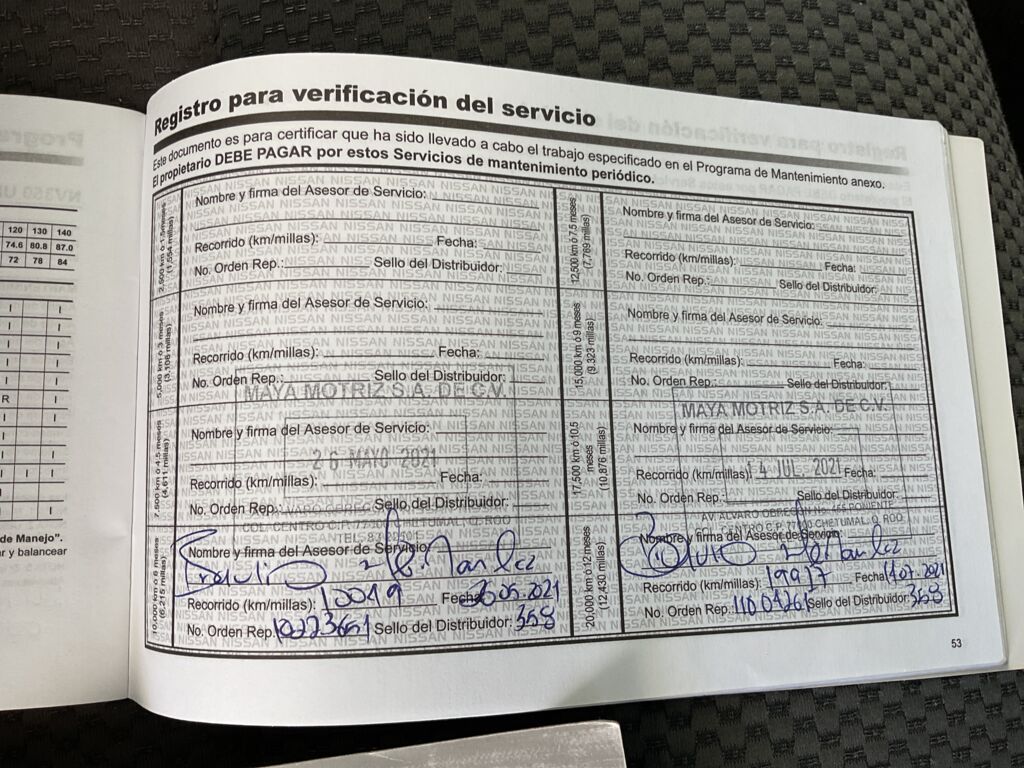 Registro para verificación del servicio
Este documento es para certificar que ha sido llevado a cabo el trabajo especificado en el Programa de Mantenimiento anexo.
El propietario DEBE PAGAR por estos Servicios de mantenimiento periódico.
2,500 km ó 1.5 meses
(1,554 millas)
Nombre y firma del Asesor de Servicio:
Recorrido (km/millas): Fecha:
No. Orden Rep.: Sello del Distribuidor:
5,000 km ó 3 meses
(3,108 millas)
Nombre y firma del Asesor de Servicio:
Recorrido (km/millas): Fecha:
No. Orden Rep.: Sello del Distribuidor:
MAYA MOTRIZ S.A. DE C.V.
7,500 km ó 4.5 meses
(4,611 millas)
Nombre y firma del Asesor de Servicio:
26 MAYO 2021
Recorrido (km/millas): Fecha:
No. Orden Rep.: Sello del Distribuidor:
COL. CENTRO C.P. CHETUMAL, Q. ROO
10,000 km ó 6 meses
(6,215 millas)
Nombre y firma del Asesor de Servicio:
Recorrido (km/millas): 10019 Fecha: 26.05.2021
No. Orden Rep. Sello del Distribuidor: 358
12,500 km ó 7.5 meses
(7,769 millas)
Nombre y firma del Asesor de Servicio:
Recorrido (km/millas): Fecha:
No. Orden Rep.: Sello del Distribuidor:
15,000 km ó 9 meses
(9,323 millas)
Nombre y firma del Asesor de Servicio:
Recorrido (km/millas): Fecha:
No. Orden Rep.: Sello del Distribuidor:
MAYA MOTRIZ S.A. DE C.V.
17,500 km ó 10.5
meses
(10,876 millas)
Nombre y firma del Asesor de Servicio:
Recorrido (km/millas): 14 JUL. 2021 Fecha:
No. Orden Rep.: Sello del Distribuidor:
AV. ALVARO OBREGON PONIENTE
COL. CENTRO C.P. CHETUMAL, Q. ROO
20,000 km ó 12 meses
(12,430 millas)
Nombre y firma del Asesor de Servicio:
Recorrido (km/millas): 19917 Fecha: 14.07.2021
No. Orden Rep. Sello del Distribuidor: 358
53
120 130 140
74.6 80.8 87.0
72 78 84
R
de Manejo".
ar y balancear